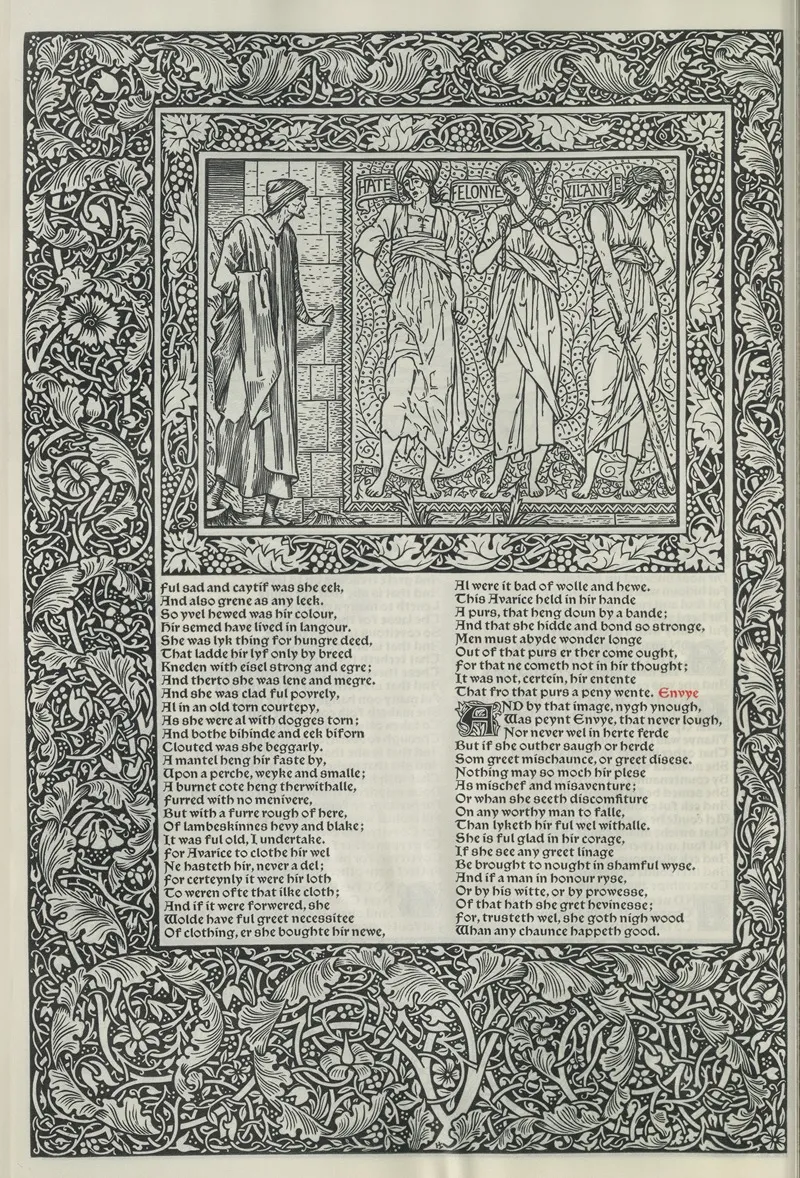 HATE
FELONYE
VILANYE
ful sad and caytif was she eek,
And also grene as any leek.
So yvel hewed was hir colour,
Hir semed have lived in langour.
She was lyk thing for hungre deed,
That ladde hir lyf only by breed
Kneden with eisel strong and egre;
And therto she was lene and megre.
And she was clad ful povrely,
Al in an old torn courtepy,
As she were al with dogges torn;
And bothe bihinde and eek biforn
Clouted was she beggarly.
A mantel heng hir faste by,
Upon a perche, weyke and smalle;
A burnet cote heng therwithalle,
furred with no menivere,
But with a furre rough of here,
Of lambeskinnes hevy and blake;
It was ful old, I undertake.
for Avarice to clothe hir wel
Ne hasteth hir, never a del;
for certeynly it were hir loth
To weren ofte that ilke cloth;
And if it were forwered, she
Wolde have ful greet necessitee
Of clothing, er she boughte hir newe,
Al were it bad of wolle and hewe.
This Avarice held in hir hande
A purs, that heng doun by a bande;
And that she hidde and bond so stronge,
Men must abyde wonder longe
Out of that purs er ther come ought,
for that ne cometh not in hir thought;
It was not, certein, hir entente
That fro that purs a peny wente. Envye
AND by that image, nygh ynough,
Was peynt Envye, that never lough,
Nor never wel in herte ferde
But if she outher saugh or herde
Som greet mischaunce, or greet disese.
Nothing may so moch hir plese
As mischef and misaventure;
Or whan she seeth discomfiture
On any worthy man to falle,
Than lyketh hir ful wel withalle.
She is ful glad in hir corage,
If she see any greet linage
Be brought to nought in shamful wyse.
And if a man in honour ryse,
Or by his witte, or by prowesse,
Of that hath she gret hevinesse;
for, trusteth wel, she goth nigh wood
Whan any chaunce happeth good.